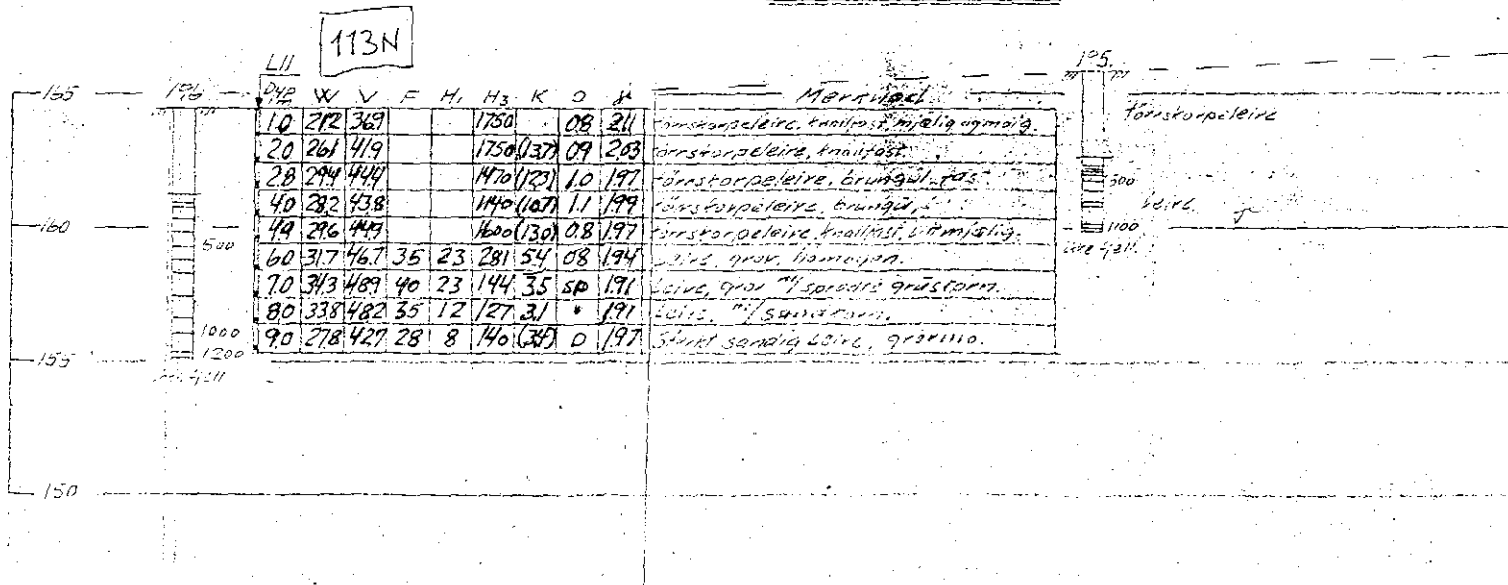 113N
L11
165 196 Dyp W V F H1 H3 K O γ Merknad 195
1.0 21.2 36.9 1750 0.8 2.11 tørrskorpeleire, knallfast, mjælig
2.0 26.1 41.9 1750 (137) 0.9 2.03 tørrskorpeleire, knallfast
2.8 29.4 44.4 1470 (123) 1.0 1.97 tørrskorpeleire, brungul, fast
4.0 28.2 43.8 1140 (107) 1.1 1.99 tørrskorpeleire, brungul
4.9 29.6 44.9 1600 (130) 0.8 1.97 tørrskorpeleire, knallfast, litt mjælig.
6.0 31.7 46.7 35 23 281 54 0.8 1.94 Leire, grov, homogen.
7.0 34.3 48.9 40 23 144 35 sp 1.91 Leire, grov m/ spredte gruskorn.
8.0 33.8 48.2 35 12 127 31 " 1.91 Leire, m/ sandkorn.
9.0 27.8 42.7 28 8 140 (34) 0 1.97 Sterkt sandig leire, grovmo.
Tørrskorpeleire
500
Leire
1100
160
500
1000
1200
155
150